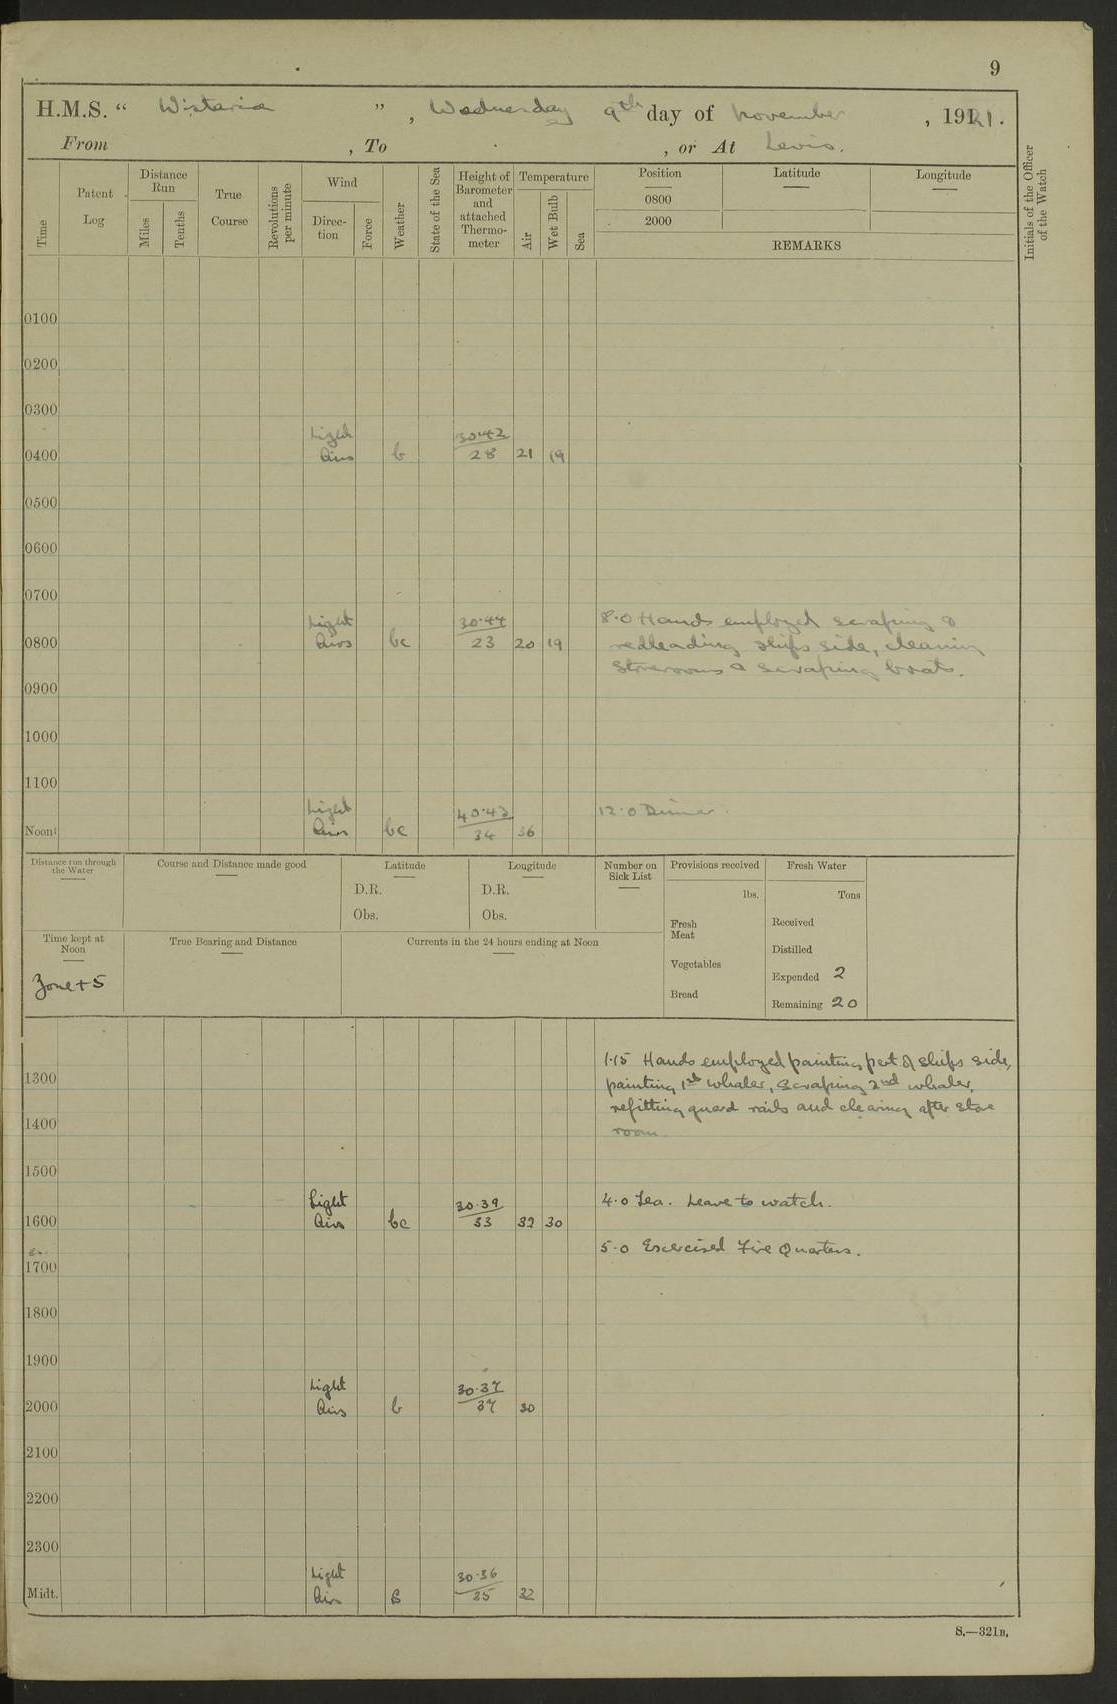 9
H.M.S. “ Wistaria ” , Wednesday 9th day of November , 1921.
From , To , or At Levis.
Time
Patent Log
Distance Run
Miles
Tenths
True Course
Revolutions per minute
Wind
Direc-tion
Force
Weather
State of the Sea
Height of Barometer and attached Thermo-meter
Temperature
Air
Wet Bulb
Sea
Position
0800
2000
Latitude
Longitude
REMARKS
Initials of the Officer of the Watch
0100
0200
0300
Light 30.42
0400 Airs b 28 21 19
0500
0600
0700
Light 30.44 8.0 Hands employed scraping &
0800 Airs bc 23 20 19 redleading ships side, cleaning
storerooms & scraping boats.
0900
1000
1100
Light 40.43 12.0 Dinner.
Noon Airs bc 34 36
Distance run through the Water
Course and Distance made good
Latitude
D.R.
Obs.
Longitude
D.R.
Obs.
Number on Sick List
Provisions received
lbs.
Fresh Meat
Vegetables
Bread
Fresh Water
Tons
Received
Distilled
Expended 2
Remaining 20
Time kept at Noon
Zone + 5
True Bearing and Distance
Currents in the 24 hours ending at Noon
1.15 Hands employed painting part of ships side,
1300 painting 1st whaler, scraping 2nd whaler,
refitting guard rails and clearing after store
1400 room.
1500
Light 30.39 4.0 Tea. Leave to watch.
1600 Airs bc 33 32 30
5.0 Exercised Fire Quarters.
1700
1800
1900
Light 30.37
2000 Airs b 37 30
2100
2200
2300
Light 30.36
Midt. Air B 35 32
S.—321B.